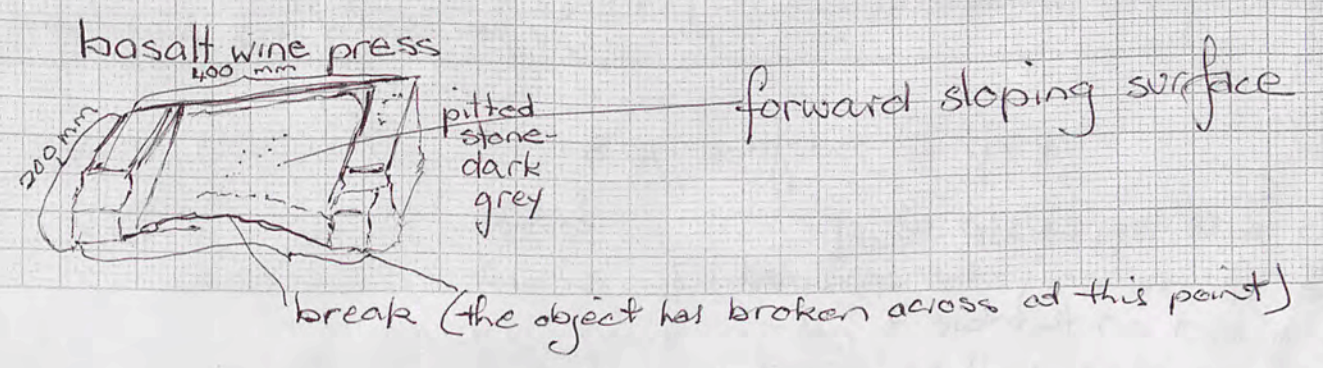 basalt wine press
400 mm
200mm
pitted
stone-
dark
grey
forward sloping surface
break (the object has broken across at this point)